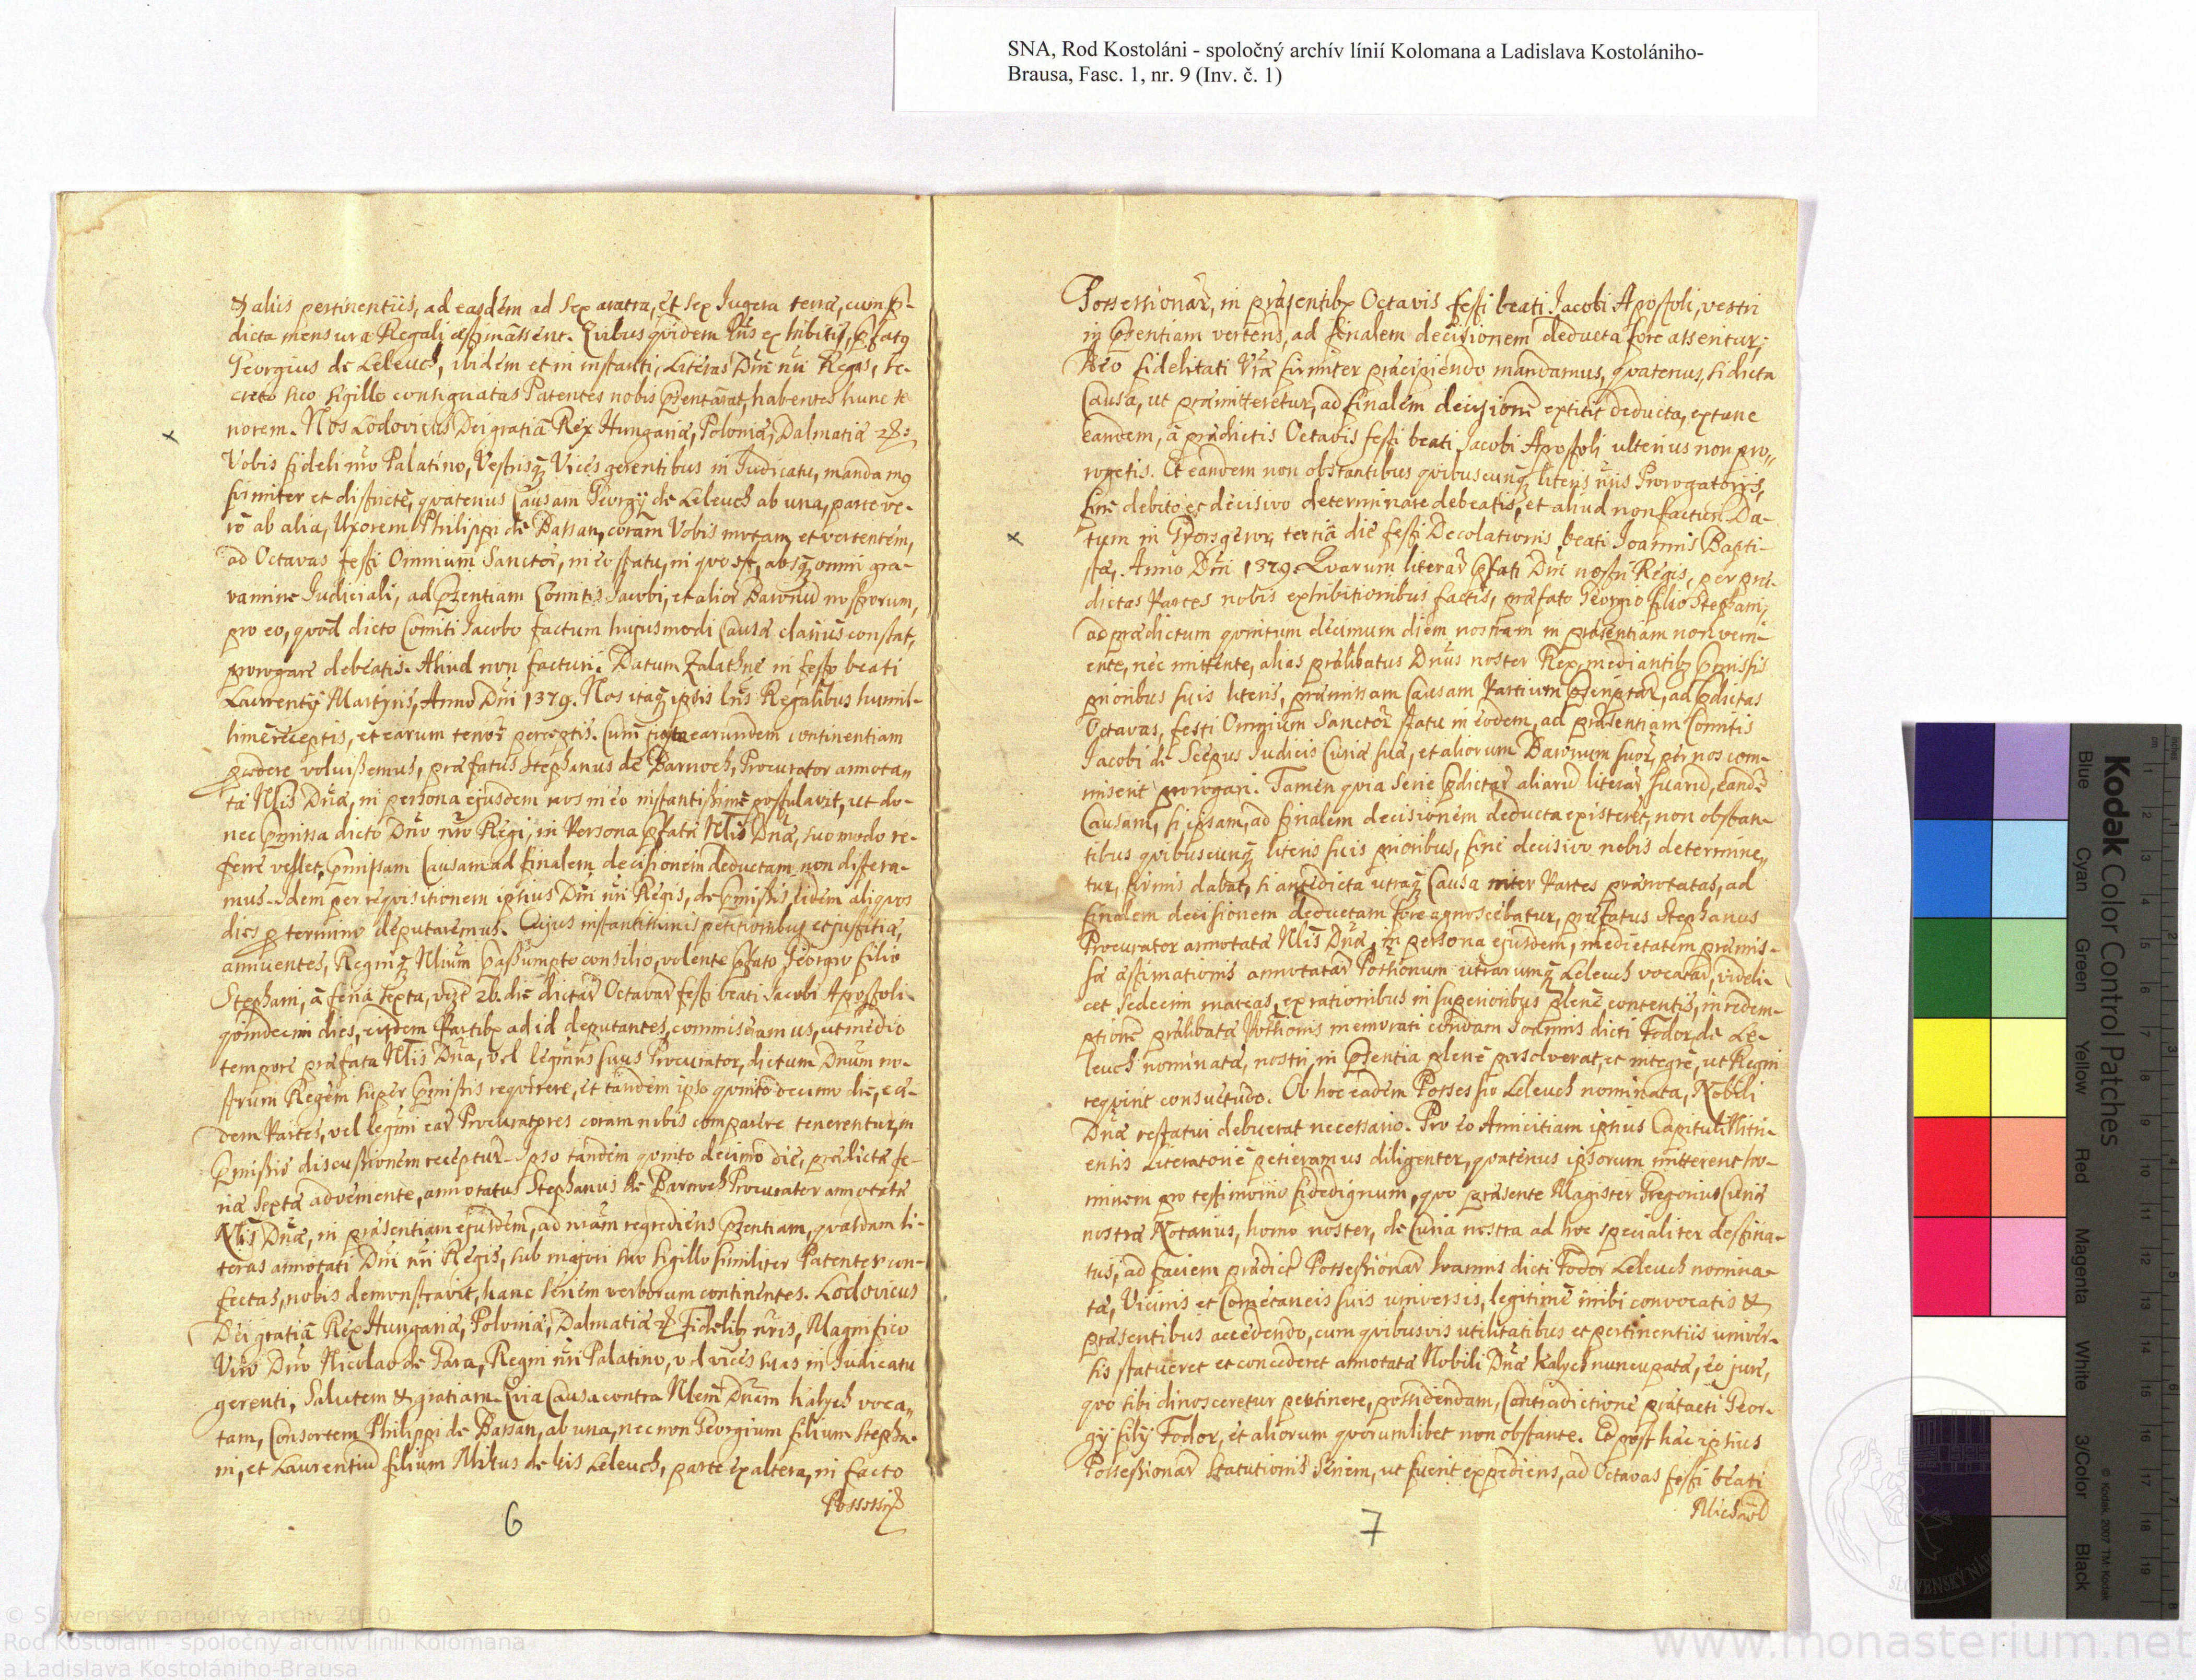 SNA, Rod Kostoláni - spoločný archív línií Kolomana a Ladislava Kostolániho-
Brausa, Fasc. 1, nr. 9 (Inv. č. 1)
& aliis pertinentiis, ad easdem ad sex aratra, et sex Jugera terrae, cum p-
dicta mensurae Regali aestimassent. Quibus quidem Lris exhibitis, pfatus
Georgius de Leleuch, ibidem et in instanti, Literas Dni nri Regis, se-
creto suo sigillo consignatas Patentes nobis pzentarat, habentes hunc te
norem. Nos Lodovicus Dei gratia Rex Hungariae, Poloniae, Dalmatiae
Vobis fideli nro Palatino, Vestrisq Vices gerentibus in Judicatu, mandamus
firmiter et districtè, quatenus Causam Georgÿ de Leleuch ab una, parte ve-
ro ab alia, Uxorem Philippi de Bassan, coram Vobis motam et vertentem,
ad Octavas festi Omnium Sanctor, in eo statu, in quo est, absq omni gra-
vamine Judiciali, ad pzentiam Comitis Jacobi, et alior Baronũ nostrorum,
pro eo, quod dicto Comiti Jacobo factum hujusmodi Causae clariùs constat,
prorogare debeatis. Aliud non facturi. Datum Zalathne in festo beati
Laurentÿ Martyris, Anno Dni 1379. Nos itaq ipsis Lris Regalibus humil-
limè receptis, et earum tenor perceptis. Cum juxta earundem continentiam
procedere voluissemus, praefatus Stephanus de Barwoch, Procurator annota-
tae Nlis Dnae, in persona ejusdem nos in eo instantissimè postulavit, ut do-
nec pmissa dicto Dno nro Regi, in Persona pfatae Nlis Dnae, suo modo re-
ferre vellet, pmissam Causam ad finalem decisionem deductam non differa-
mus. Idem per requisitionem ipsius Dni nri Regis, de pmissis, eidem aliquos
dies p termino deputaremus. Cujus instantissimis petitionibus et justitiae,
annuentes, Regniq Nlium passumpto consilio, volente pfato Georgio filio
Stephani, à feria sexta, vizt 26. die dictar Octavar festi beati Jacobi Apostoli
quindecim dies, eisdem Partibz ad id deputantes, commiseramus, ut medio
tempore praefata Nlis Dna, vel legitimus suus Procurator, dictum Dnum no-
strum Regem super pmissis requirere, et tandem ipso quinto decimo die, eae-
dem Partes, vel legitimi ear Procuratores coram nobis comparere tenerentur, in
pmissis discussionem receptur. Ipso tandem quinto decimo die, praedictae fe-
riae sextae adveniente, annotatus Stephanus de Barwoch Procurator annotatae
Nlis Dnae, in praesentiam ejusdem, ad nram regrediens pzentiam, quasdam li-
teras annotati Dni nri Regis, sub majori suo sigillo similiter Patenter con-
fectas, nobis demonstravit, hanc seriem verborum continentes. Lodovicus
Dei gratia Rex Hungariae, Poloniae, Dalmatiae Fidelibz nris, Magnifico
Viro Dno Nicolao de Gara, Regni nri Palatino, vel vices suas in Judicatu
gerenti, Salutem & gratiam. Quia Causa contra Nlem Dnam Kalych voca-
tam, Consortem Philippi de Bassan, ab una, nec non Georgium filium Stepha-
ni, et Laurentiũ filium Mikus de eis Leleuch, parte ex altera, in facto
Possessi
6
Possessionar, in praesentibz Octavis festi beati Jacobi Apostoli, vestri
in pzentiam vertens, ad finalem decisionem deducta fore asseritur;
Ideo fidelitati Vrae firmiter praecipiendo mandamus, quatenus, si dicta
Causa, ut praemitteretur, ad finalem decisionē extitit deducta, extunc
eandem, à praedictis Octavis festi beati Jacobi Apostoli ulterius non pro-
rogetis. Et eandem non obstantibus quibuscunq literis nris Prorogatoriis,
fine debito et decisivo determinare debeatis, et aliud non facturi. Da-
tum in Gyorsgeror, tertia die festi Decolationis beati Joannis Bapti-
stae, Anno Dni 1379. Quarum literar pfati Dni nostri Regis, per prae-
dictas Partes nobis exhibitionibus factis, praefato Georgio filio Stephani,
ad praedictum quintum decimum diem nostram in praesentiam non veni-
ente, nec mittente, alias praelibatus Dnus noster Rex, mediantibz pmissis
prioribus suis literis, praemissam Causam Partium pscriptar, ad pdictas
Octavas, festi Omnium Sanctor statu in eodem, ad praesentiam Comitis
Jacobi de Scepus Judicis Curiae suae, et aliorum Baronum suor, per nos com-
miserit prorogari. Tamen quia serie pdictar aliarũ literar suarũ, eandē
Causam, si ipsam, ad finalem decisionem deducta existeret, non obstan-
tibus quibuscunq literis suis prioribus, fine decisivo nobis determine-
tur, firmis dabat, si antedicta utraq Causa inter Partes praenotatas, ad
finalem decisionem deductam fore agnoscebatur, praefatus Stephanus
Procurator annotatae Nlis Dnae, in persona ejusdem, medietatem praemis-
sae aestimationis annotatar Portionum utrarumq Leleuch vocatar, videli-
cet sedecim marcas, ex rationibus in superioribus plenè contentis, in redem-
ptionē praelibatae Portionis memorati condam Joannis dicti Fodor de Le-
leuch nominatae, nostri in pzentia plenè persolverat, et integrè, ut Regni
requirit consuetudo. Ob hoc eadem Possessio Leleuch nominata, Nobili
Dnae restatui debuerat necessario. Pro eo Amicitiam ipsius Capituli Nitri-
ensis Literatoriè petieramus diligenter, quatenus ipsorum mitterent ho-
minem pro testimonio fidedignum, quo praesente Magister Gregorius Curiae
nostrae Notarius, homo noster, de Curia nostra ad hoc specialiter destina-
tus, ad faciem praedict Possessionar Joannis dicti Fodor Leleuch nomina-
tae, Vicinis et Cometaneis suis universis, legitimè inibi convocatis &
praesentibus accedendo, cum quibusvis utilitatibus et pertinentiis univer-
sis statueret et concederet annotatae Nobili Dnae Kalych nuncupatae, eo jure,
quo sibi dinosceretur pertinere, possidendam, Contradictione praetacti Geor-
gÿ filÿ Fodor, et aliorum quorumlibet non obstante. Et post haec ipsius
Possessionar statutionis seriem, ut fuerit expediens, ad Octavas festi beati
Michael
7
Kodak Color Control Patches
Blue
Cyan
Green
Yellow
Red
Magenta
White
3/Color
Black
© Kodak, 2007 TM: Kodak
© Slovenský národný archív 2010
Rod Kostoláni - spoločný archív línií Kolomana
a Ladislava Kostolániho-Brausa
www.monasterium.net